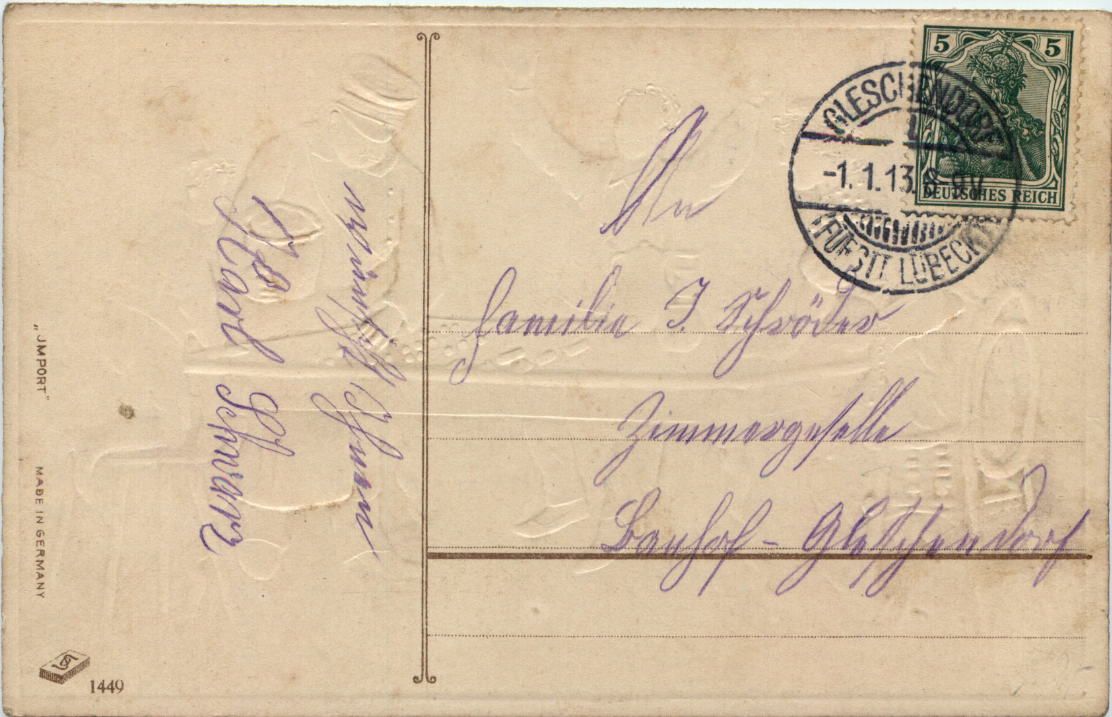 wünscht Ihnen
Karl Schwarz
An
Familie J. Schröder
Zimmergeselle
Bauhof - Gleschendorf
5 5
DEUTSCHES REICH
GLESCHENDORF
-1.1.13. 8-9V.
(FÜRSTT. LÜBECK)
„JMPORT"
MADE IN GERMANY
1449